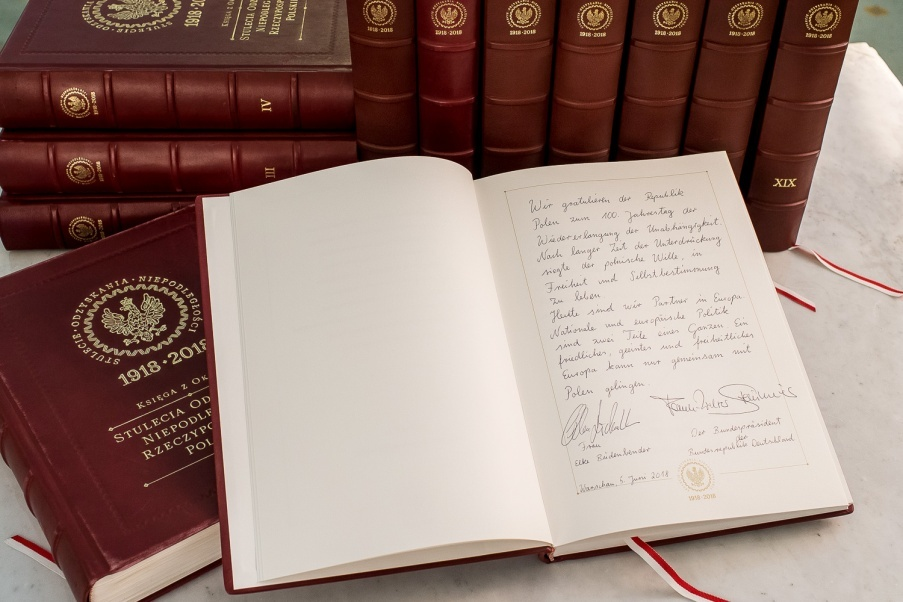 STULECIE
1918·20
KSIĘGA Z O
STULECIA OD
NIEPODLEG
RZECZYPOS
POLSKI
1918-2018
1918-2018
1918-2018
1918-2018
1918-2018
1918-2018
1918-2018
IV
III
XIX
STULECIE·ODZYSKANIA·NIEPODLEGŁOŚCI
1918·2018
KSIĘGA Z OK
STULECIA OD
NIEPODLEG
RZECZYPO
POL
Wir gratulieren der Republik
Polen zum 100. Jahrestag der
Wiedererlangung der Unabhängigkeit.
Nach langer Zeit der Unterdrückung
siegte der polnische Wille, in
Freiheit und Selbstbestimmung
zu leben.
Heute sind wir Partner in Europa.
Nationale und europäische Politik
sind zwei Teile eines Ganzen. Ein
friedliches, geeintes und freiheitliches
Europa kann nur gemeinsam mit
Polen gelingen.
Frau
Elke Büdenbender
Der Bundespräsident
der
Bundesrepublik Deutschland
Warschau, 5. Juni 2018
1918-2018